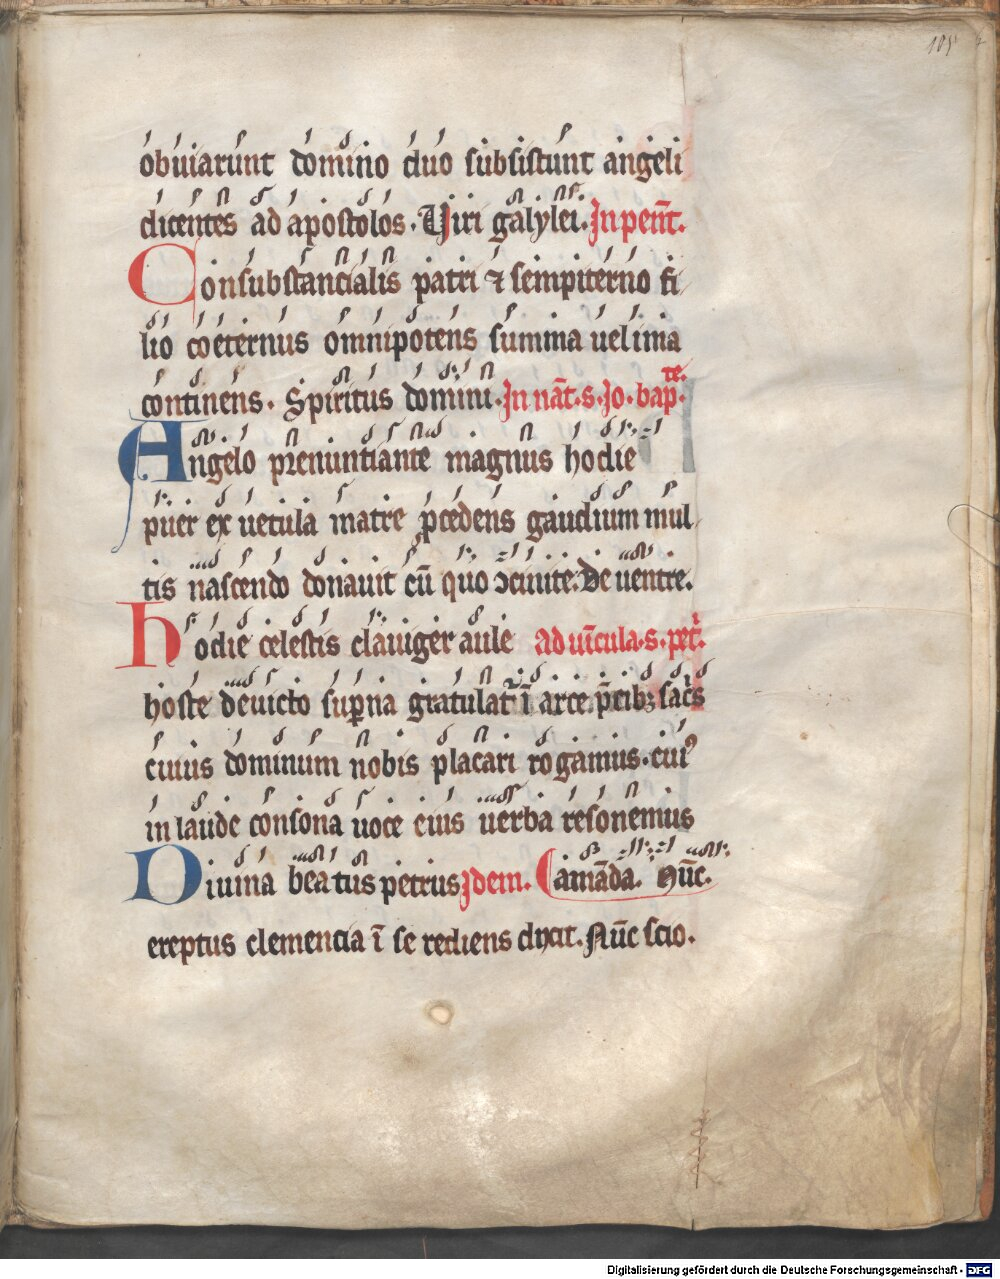 105
obuiarunt domino duo subsistunt angeli
dicentes ad apostolos. Viri galylei. In penт̄.
Consubstancialis patri ⁊ sempiterno fi
lio coeternus omnipotens summa uel ima
continens. Spiritus domini. In nat̄. s. Jo. bapte.
Angelo prenuntiante magnus hodie
puer ex uetula matre p̄cedens gaudium mul
tis nascendo donauit cū quo ↄcinite. De uentre.
hodie celestis clauiger aule ad uīcula. s. petr̄.
hoste deuicto suꝑna gratulat᷑ ī arce. p̄cibꝫ sac̄s
cuius dominum nobis placari rogamus. cuiꝰ
in laude consona uoce eius uerba resonemus
Diuina beatus petrus Idem. Camāda. Nūc.
ereptus clemencia ī se rediens dixit. Nūc scio.
Digitalisierung gefördert durch die Deutsche Forschungsgemeinschaft - DFG